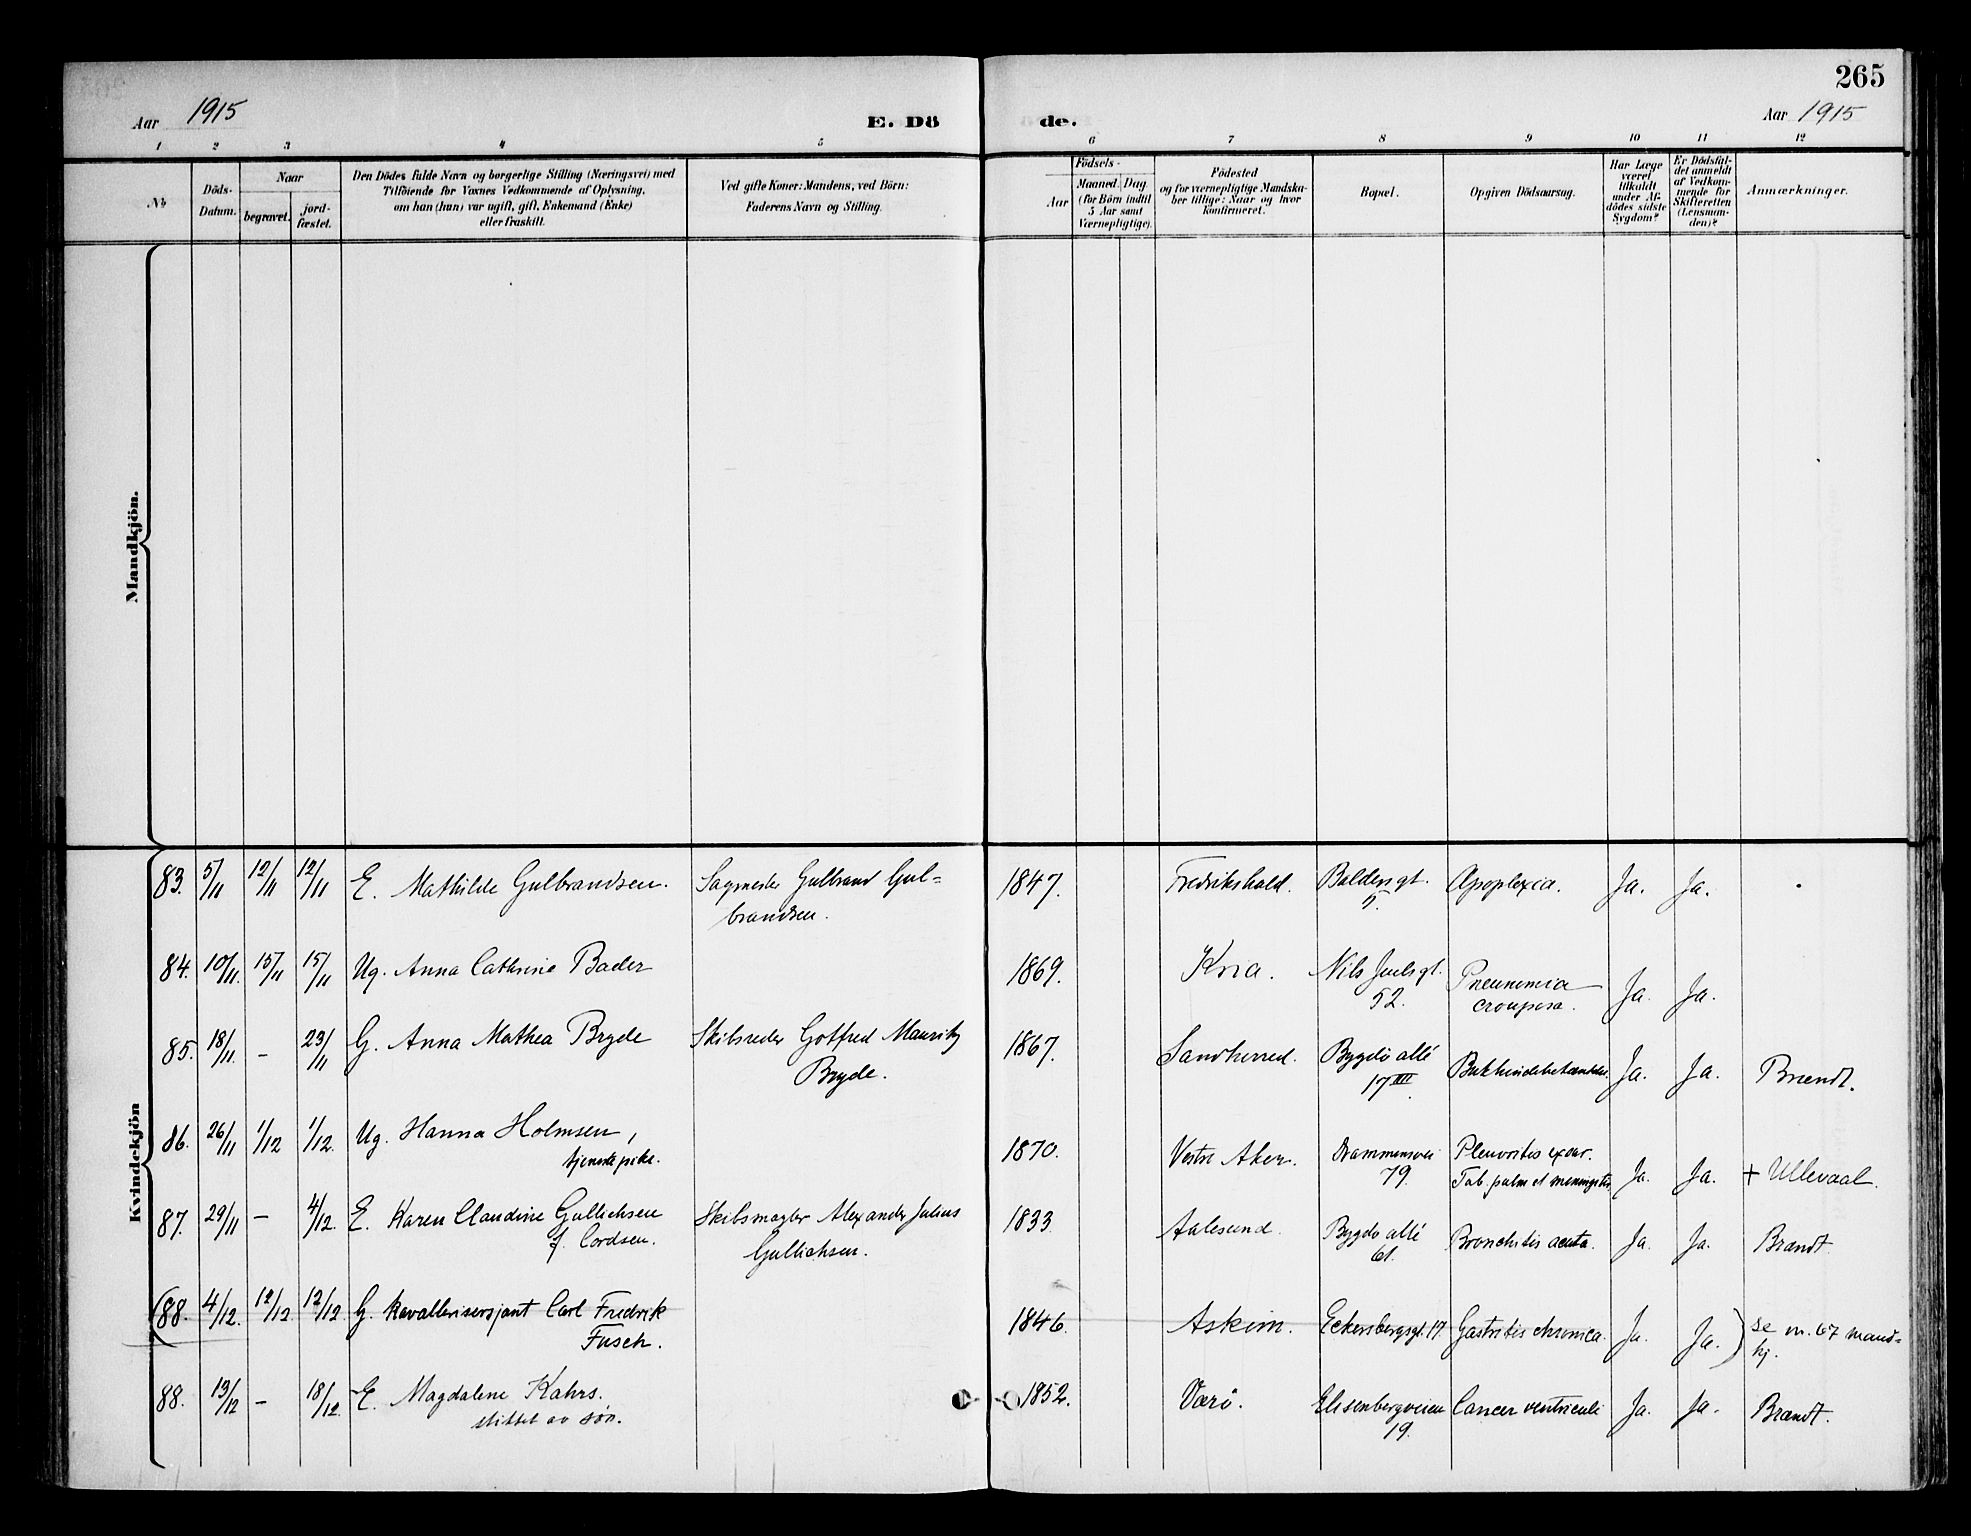 265
Aar 1915
E. Dö
de.
Aar 1915
1 2 3 4 5 6 7 8 9 10 11 12
No
Döds-
Datum.
Naar
begravet.
jord-
fæstet.
Den Dödes fulde Navn og borgerlige Stilling (Næringsvei) med
Tilföiende for Voxnes Vedkommende af Oplysning,
om han (hun) var ugift, gift, Enkemand (Enke)
eller fraskilt.
Ved gifte Koner: Mandens, ved Börn:
Faderens Navn og Stilling.
Födsels-
Aar
Maaned. Dag.
(for Börn indtil
5 Aar samt
Værnepligtige).
Födested
og for værnepligtige Mandska-
ber tillige: Naar og hvor
konfirmeret.
Bopæl.
Opgiven Dödsaarsag.
Har Læge
været
tilkaldt
under Af-
dödes sidste
Sygdom?
Er Dödsfal-
det anmeldt
af Vedkom-
mende for
Skifteretten
(Lensman-
den)?
Anmærkninger.
Mandkjön.
Kvindekjön
83. 5/11 12/11 12/11 E. Mathilde Gulbrandsen. Sagmester Gulbrand Gul=
brandsen.
1847. Fredrikshald. Baldersgt.
5.
Apoplexia. Ja. Ja.
84. 10/11. 15/11 15/11 Ug. Anna Cathrine Bader
1869. Kria. Nils Juelsgt.
52.
Pneunomia
crouposa.
Ja. Ja.
85. 18/11. - 23/11 G. Anna Mathea Bryde Skibsreder Gotfred Mauritz
Bryde.
1867. Sandherred. Bygdö allé
17 III
Bukhindebetændelse. Ja. Ja. Brændt.
86. 26/11 1/12 1/12. Ug. Hanna Holmsen,
tjenestepike.
1870. Vestre Aker. Drammensvei
79.
Pleuvritis exsur.
Tub. pulm et meningitis.
Ja. Ja. + Ullevaal.
87. 29/11 - 4/12. E. Karen Claudine Gullichsen
f. Cordsen.
Skibsmægler Alexander Julius
Gullichsen.
1833 Aalesund. Bygdö allé
61.
Bronchitis acuta. Ja. Ja. Brændt.
(88. 4/12. 12/12. 12/12 G. Kavallerisersjant Carl Fredrik
Fusch.
1846. Askim. Eckersbergsgt. 17 Gastritis chronica. Ja. Ja. ) se nr. 67 mand=
kj.
88. 13/12 - 18/12. E. Magdalene Kahrs.
støttet av søn.
1852. Værö. Elisenbergveien
19.
Cancer ventriculi Ja. Ja. Brændt.